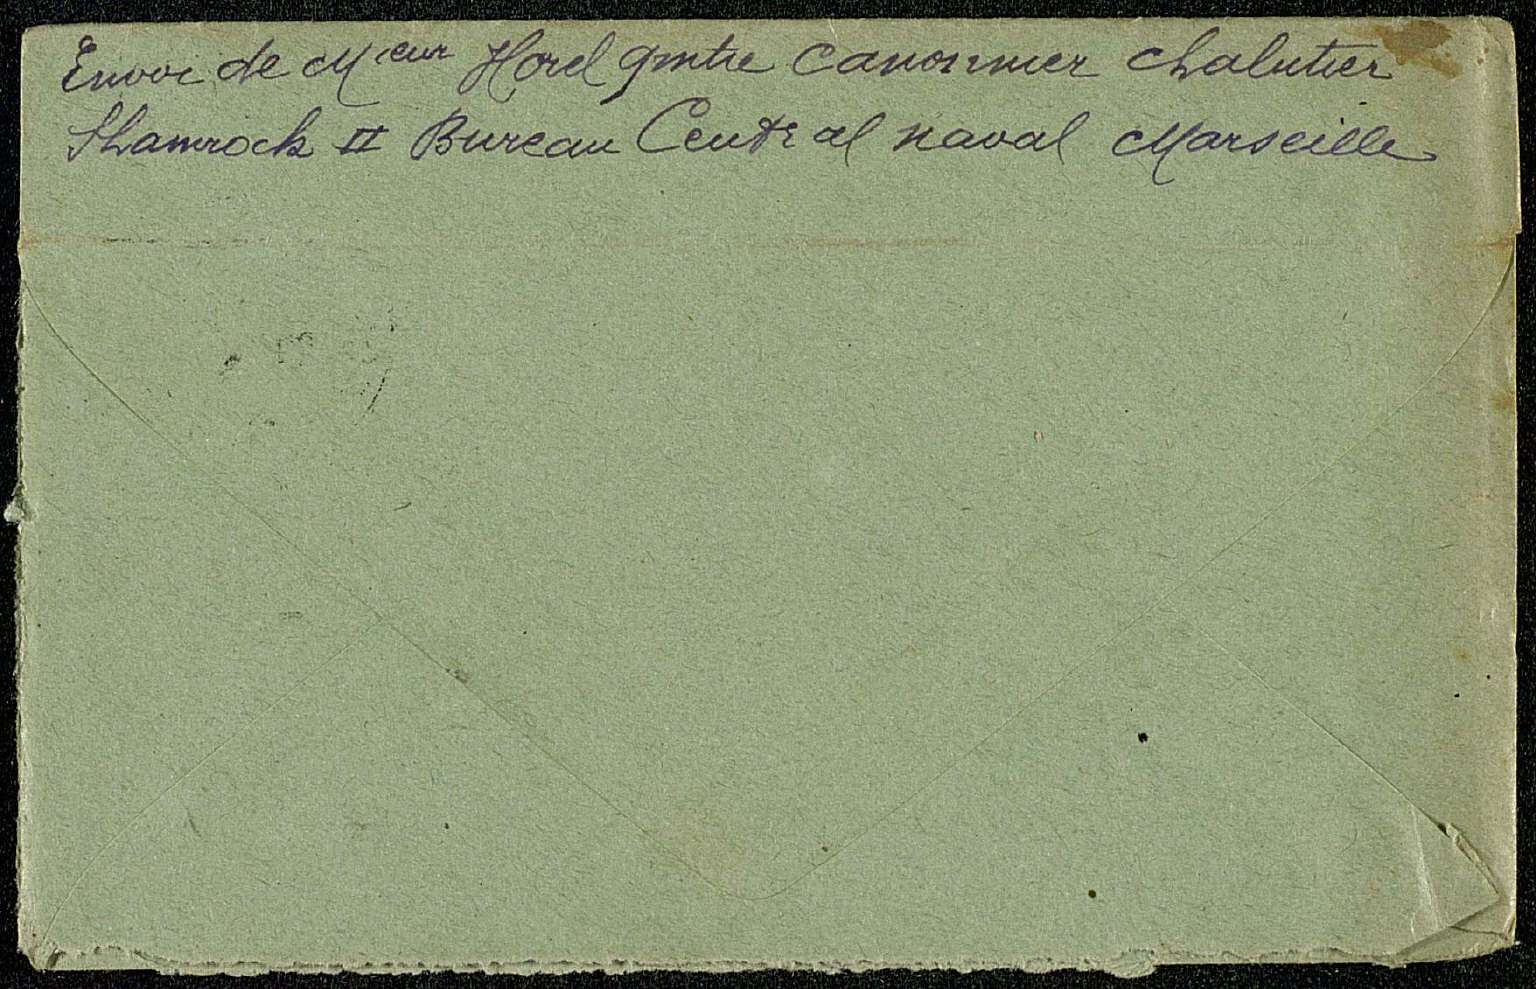 Envoi de Mieur Horel qmtre canonnier chalutier
Shamrock II Bureau Central naval Marseille